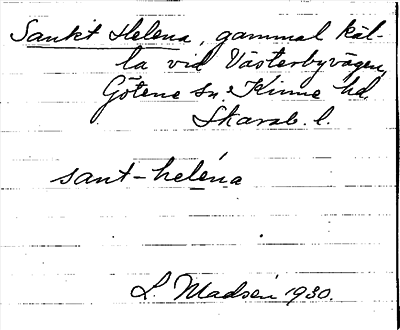 Sankt Helena, gammal käl-
la vid Västerbyvägen,
Götene sn. Kinne hd.
Skarab. l.
sant-heléna
L. Madsén 1930.